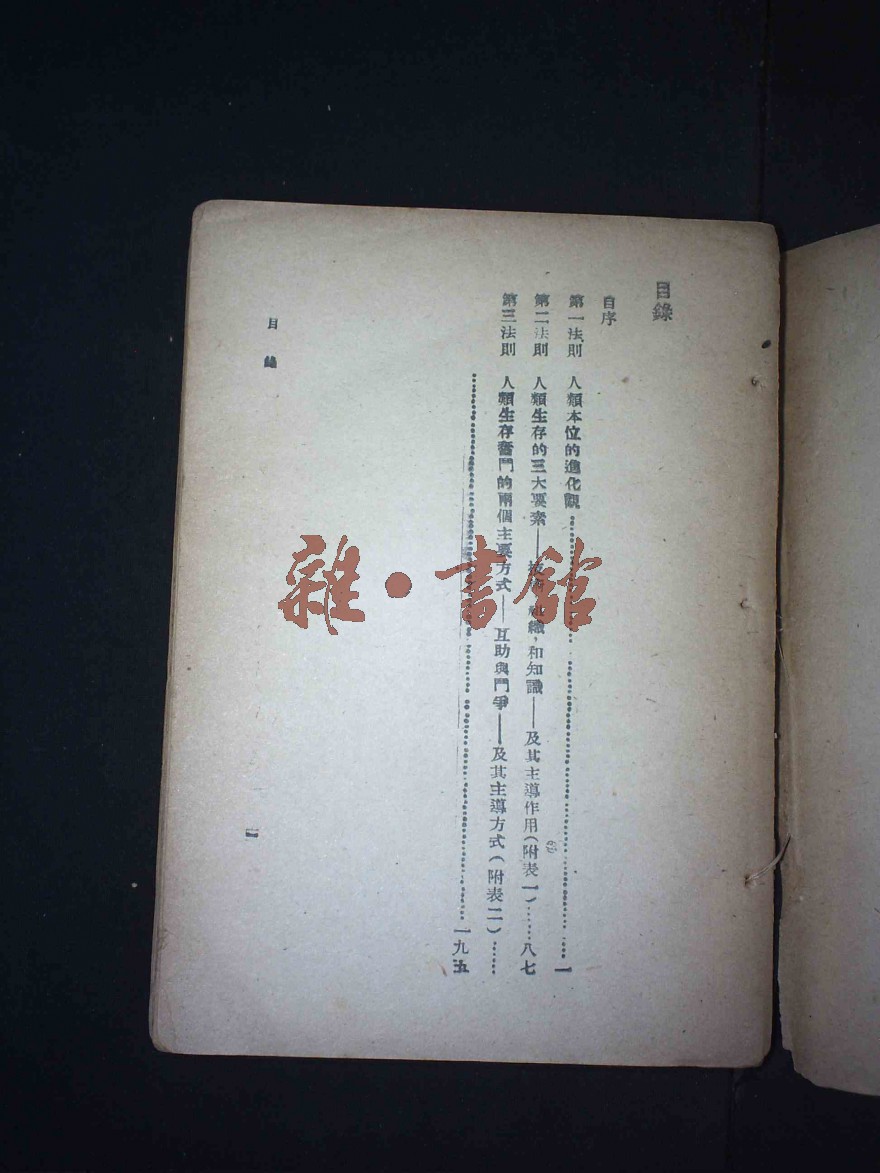 目錄
自序
第一法則 人類本位的進化觀……一
第二法則 人類生存的三大要素——技術,組織,和知識——及其主導作用(附表一)……八七
第三法則 人類生存奮鬥的兩個主要方式——互助與鬥爭——及其主導方式(附表二)……
……一九五
目錄
一
雜·書館